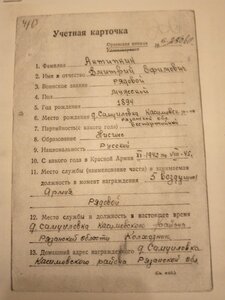 Учетная карточка
1. Фамилия Антипкин
2. Имя и отчество Дмитрий Ефимович
3. Воинское звание рядовой
4. Пол мужской
5. Год рождения 1894
6. Место рождения д. Самуиловка Касимовск. р-на
Рязанской обл.
7. Партийность (с какого года) беспартийный
8. Образование Низшее
9. Национальность Русский
10. С какого года в Красной Армии XI-1942 по VIII-45г.
11. Место службы (наименование части) и занимаемая
должность в момент награждения 5 Воздушная
Армия
Рядовой
12. Место службы и должность в настоящее время
д. Самуиловка Касимовского района
Рязанской области Колхозник
13. Домашний адрес награжденного д. Самуиловка
Касимовского района Рязанской обл.
(См. на об.)